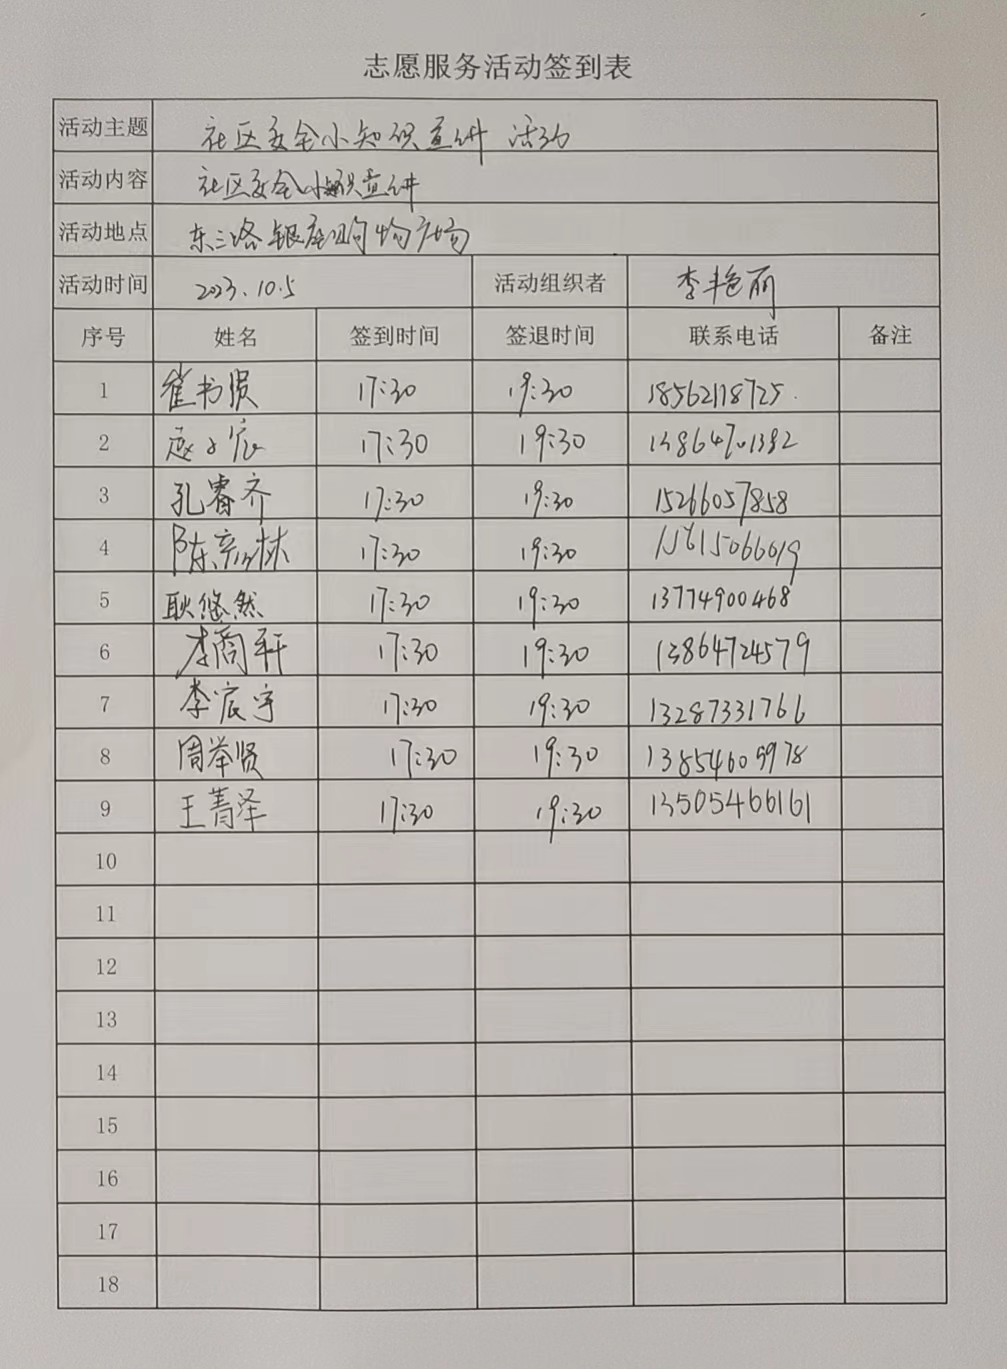 志愿服务活动签到表
活动主题 社区安全小知识宣讲 活动
活动内容 社区安全小知识宣讲
活动地点 东三路银座购物广场
活动时间 2023.10.5 活动组织者 李艳丽
序号 姓名 签到时间 签退时间 联系电话 备注
1 17:30 19:30 18562118725
2 17:30 19:30
3 孔睿齐 17:30 19:30 15266057858
4 17:30 19:30
5 耿悠然 17:30 19:30 13774900468
6 李商轩 17:30 19:30 13864724579
7 李宸宇 17:30 19:30 13287331766
8 周举贤 17:30 19:30 13854609978
9 王菁泽 17:30 19:30 13505466161
10
11
12
13
14
15
16
17
18